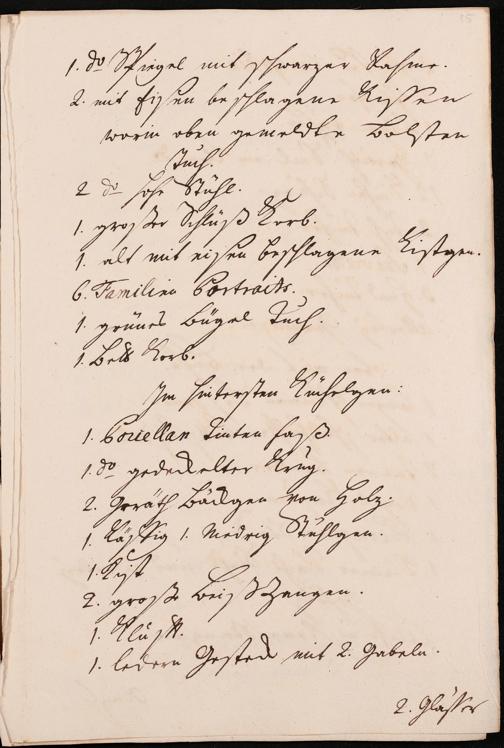 15
1. do Spiegel mit schwarzer Rahme.
2. mit Eisen beschlagene Kissen
worin oben gemeldte Bolsten
Tuch.
2 do hohe Stühl.
1. großer Schließ Korb.
1. alt mit eisen beschlagene Kistgen.
6. Familien Portraits.
1. grünes Bügel Tuch.
1. Bett Korb.
Im hintersten Küchelgen:
1. Porcellan Tinten faß.
1. do gedeckelter Krug.
2. Geräth Bäckgen von Holz.
1. 1. Niedrig Stühlgen.
1. Kist
2. große Beiß Zangen.
1.
1. ledern Gesteck mit 2. Gabeln.
2. Gläser